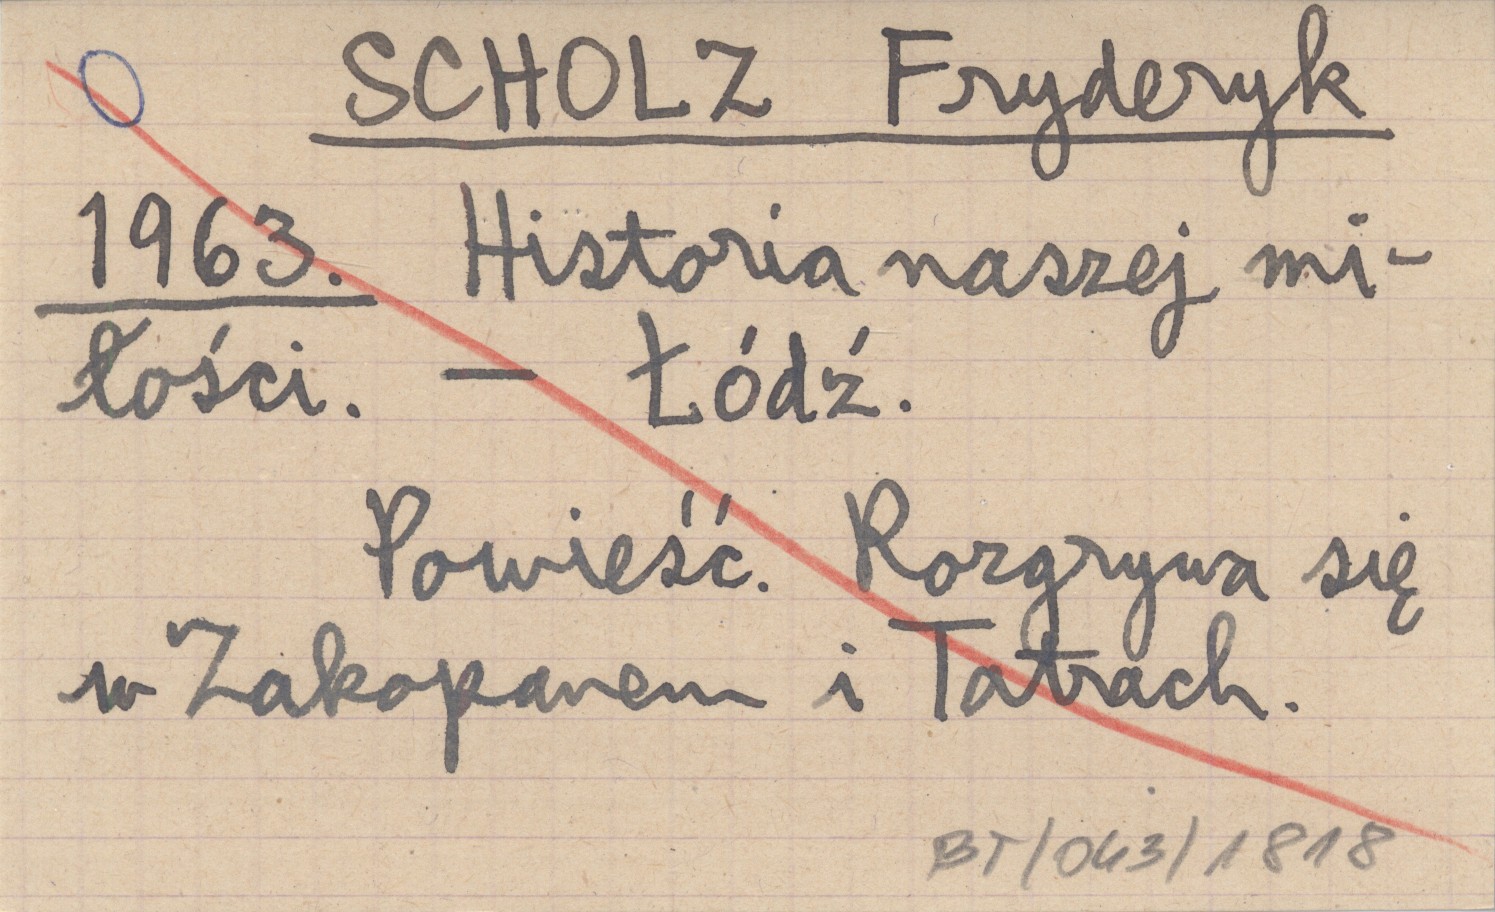 SCHOLZ Fryderyk
1963. Historia naszej mi-
łości. — Łódź.
Powieść. Rozgrywa się
w Zakopanem i Tatrach.
BT/043/1818